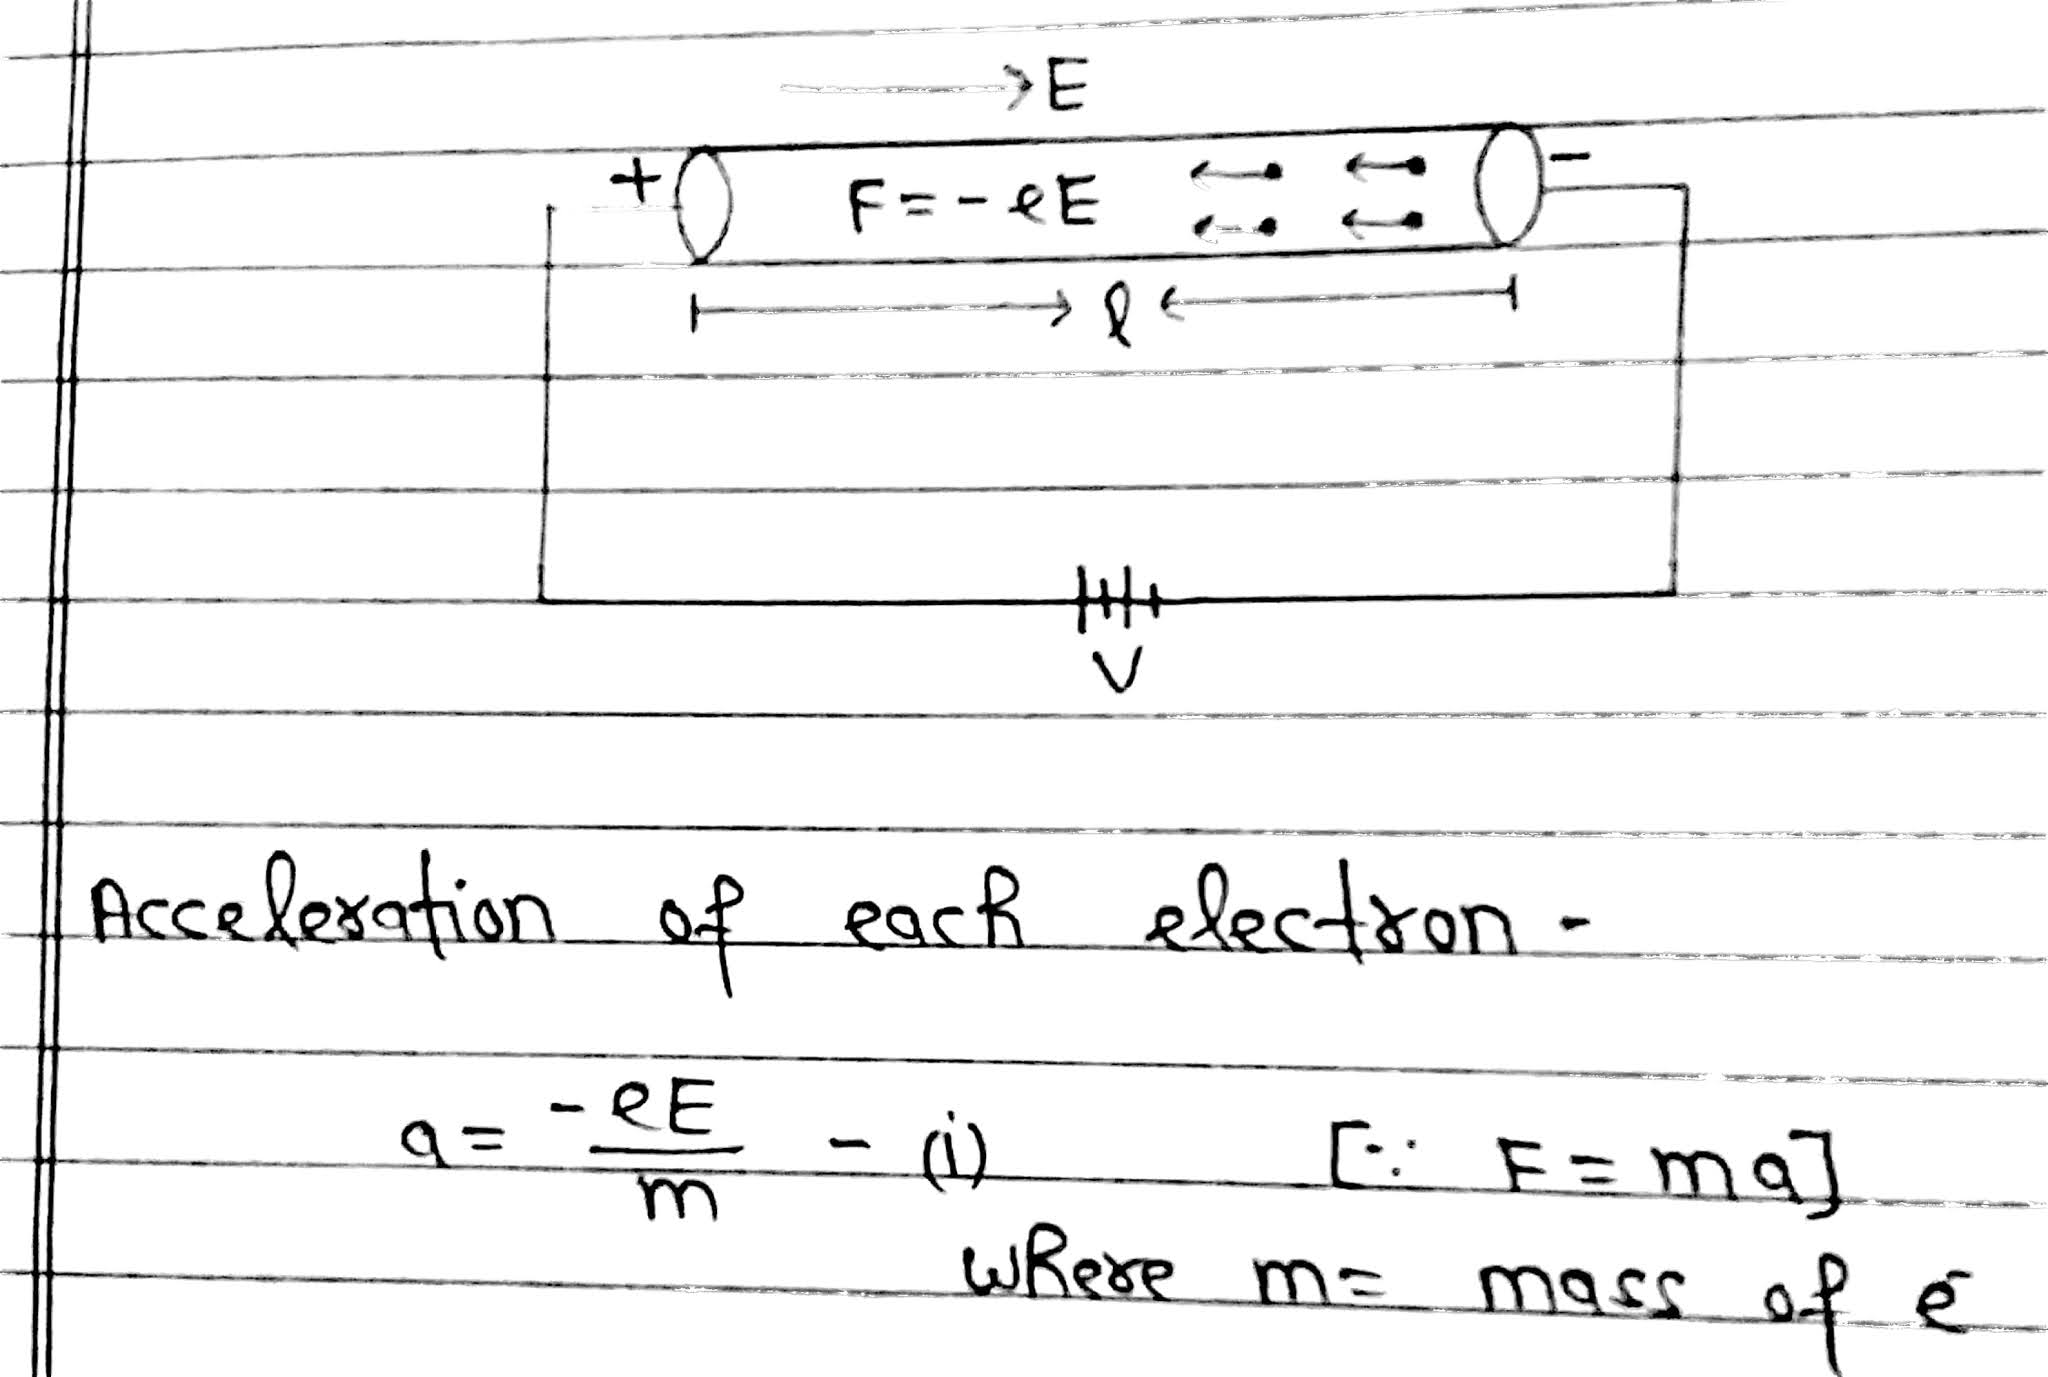 → E
+ F = - eE -
l
V
Acceleration of each electron -
a = -eE/m - (i) [∵ F = ma]
where m = mass of ē